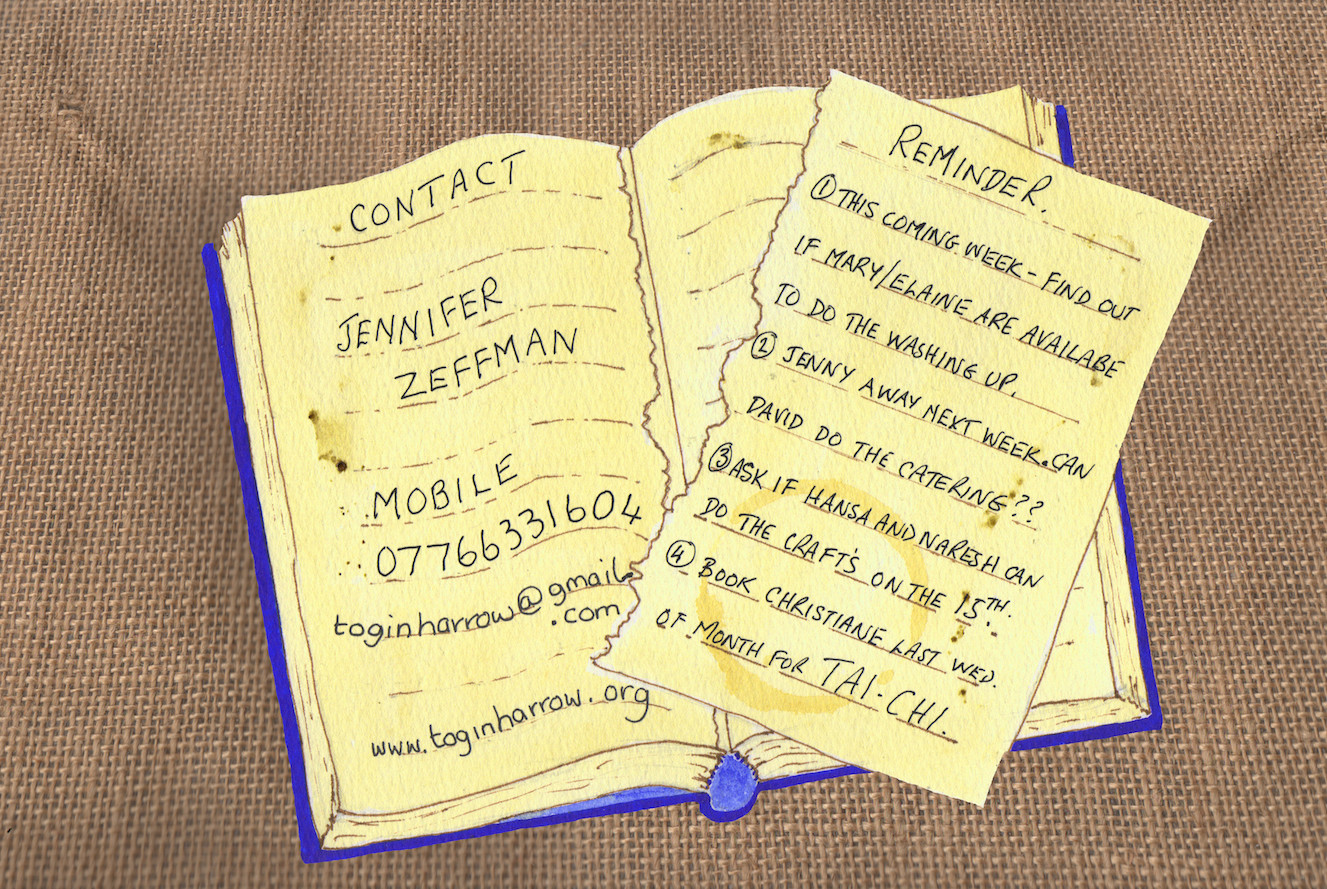 CONTACT
JENNIFER
ZEFFMAN
MOBILE
07766331604
toginharrow@gmail
.com
www.toginharrow.org
REMINDER.
① THIS COMING WEEK - FIND OUT
IF MARY/ELAINE ARE AVAILABE
TO DO THE WASHING UP.
② JENNY AWAY NEXT WEEK. CAN
DAVID DO THE CATERING??
③ ASK IF HANSA AND NARESH CAN
DO THE CRAFT'S ON THE 15TH.
④ BOOK CHRISTIANE LAST WED.
OF MONTH FOR TAI-CHI.